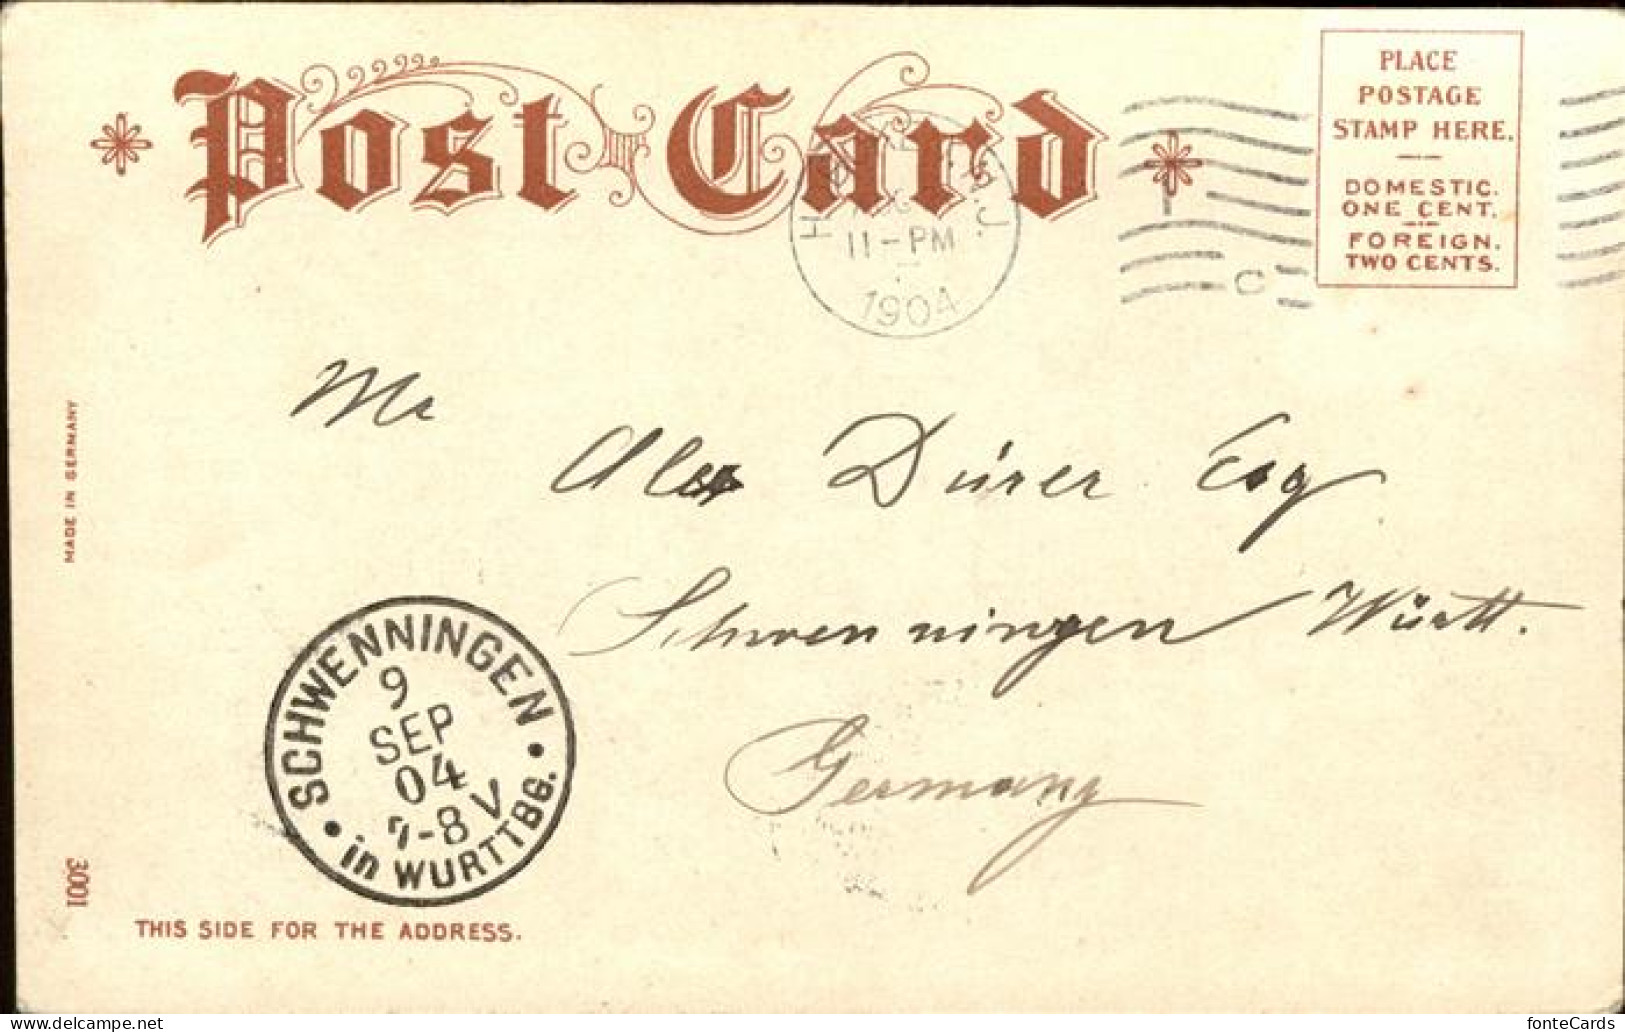 Post Card
PLACE
POSTAGE
STAMP HERE.
DOMESTIC.
ONE CENT.
FOREIGN.
TWO CENTS.
11-PM
1904
C
Mr
Alex Dürer Esq
Schwenningen Württ.
Germany
MADE IN GERMANY
SCHWENNINGEN
9
SEP
04
7-8 V
in WURTTBG.
3001
THIS SIDE FOR THE ADDRESS.
fonteCards
https://www.delcampe.net